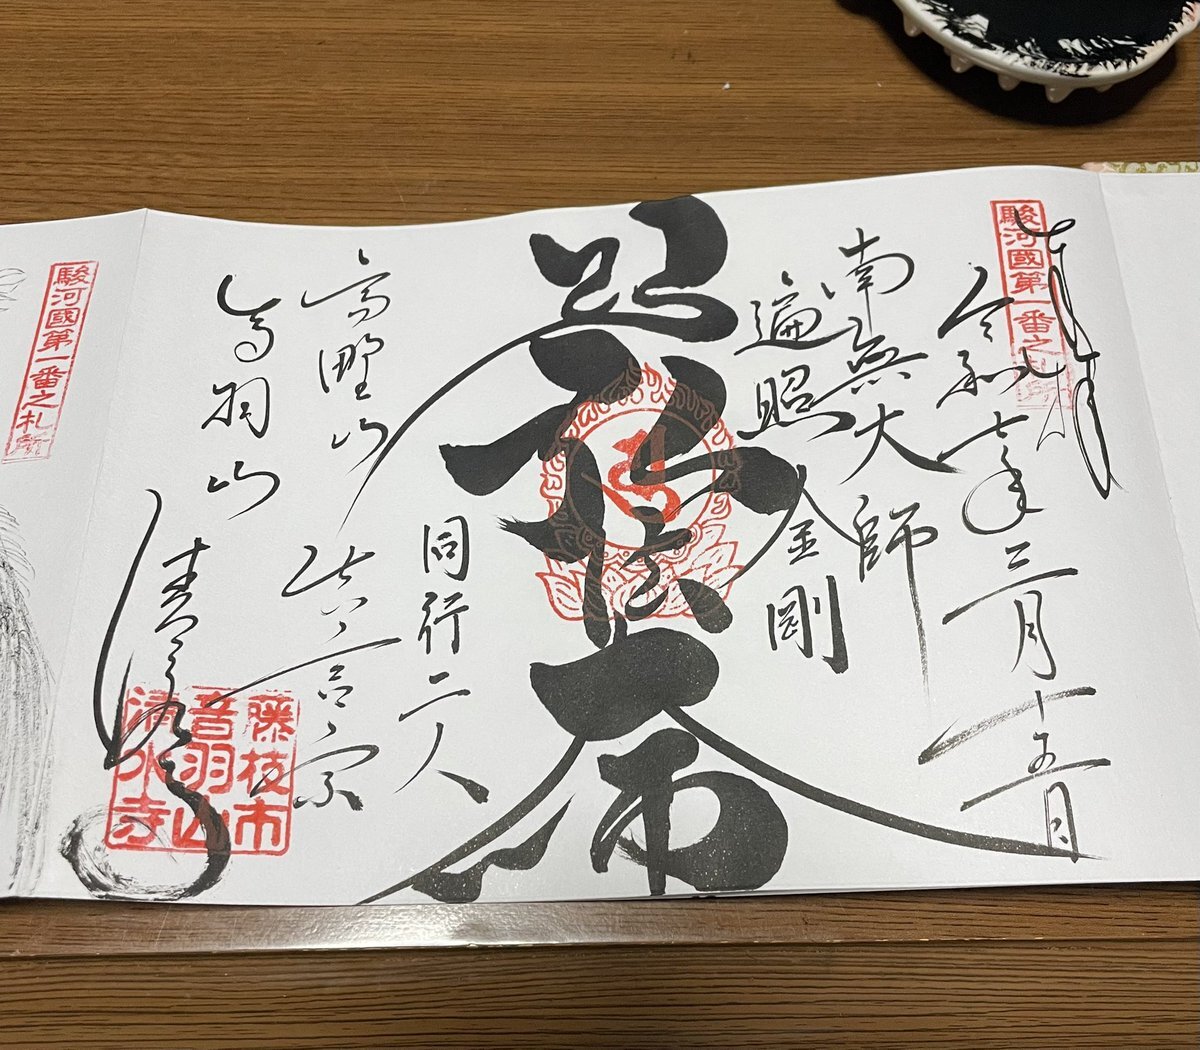 駿河國第一番之札所
奉拝
令和七年三月十五日
南無大師
遍照金剛
同行二人
高野山真言宗
音羽山
清水寺
藤枝市
音羽山
清水寺
駿河國第一番之札所